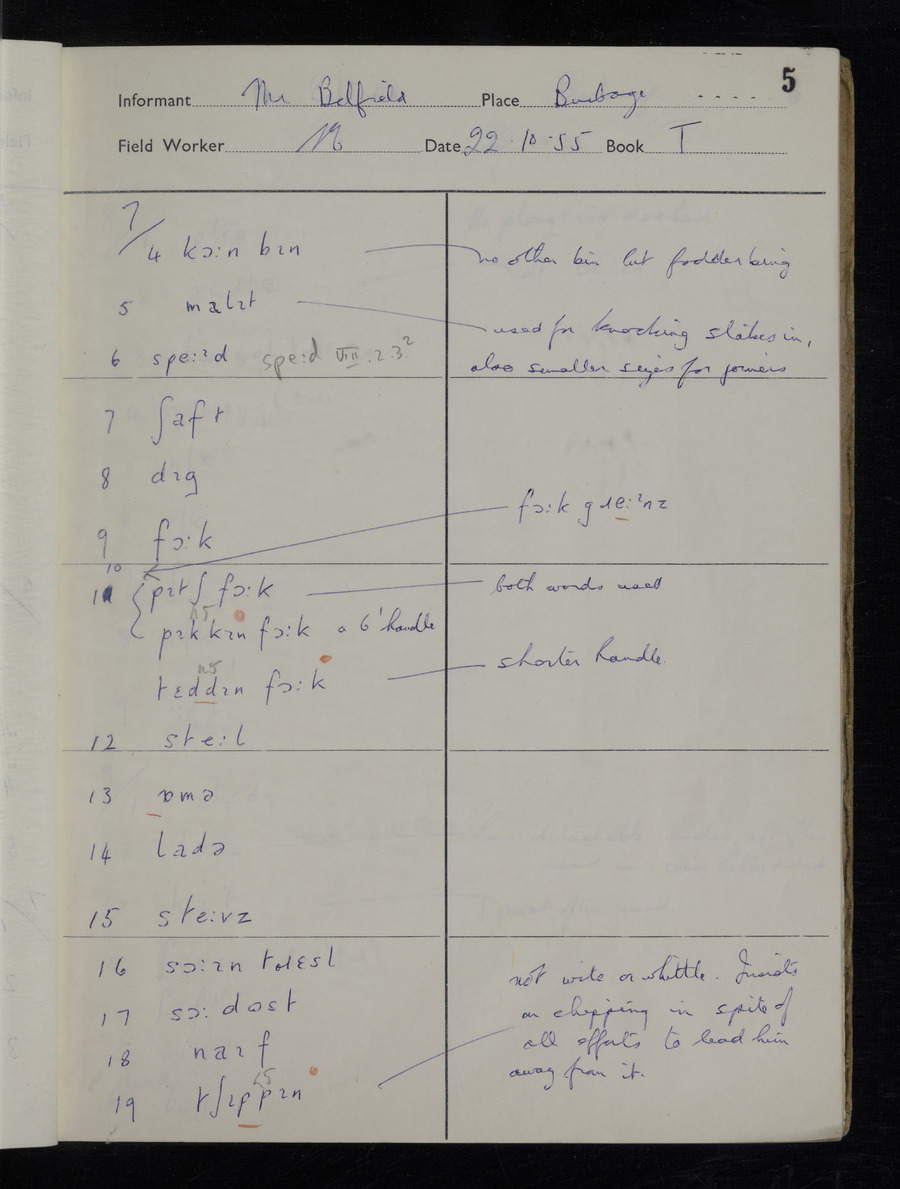 5
Informant Mr Belfield Place Burbage
Field Worker Date 22.10.55 Book T
7/
4 kɔːn bɪn no other bin but fodder being
5 maləɪt used for knocking stakes in,
6 speːᵊd speːd VIII.2.3² also smaller sizes for joiners
7 ʃaft
8 dɪg
9 fɔːk fɔːk gɹeːᵊnz
10
11 pɪtʃ fɔːk both words used
pɪkkɪn fɔːk a 6' handle
tɛddɪn fɔːk shorter handle
12 steːl
13 ɒmə
14 ladə
15 steːvz
16 sɔːɪn tɹɛsl
17 sɔː dəst
18 naɪf
19 tʃɪppɪn
not write or whittle. Insists
on chipping in spite of
all efforts to lead him
away from it.